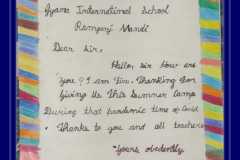 Gyana International School
Ramganj Mandi
Dear Sir,
Hello, sir How are
you? I am Tim. Thanking for
Giving Us This Summer Camp
During that pandemic time of Covid
Thanks to you and all teachers
Yours obediently